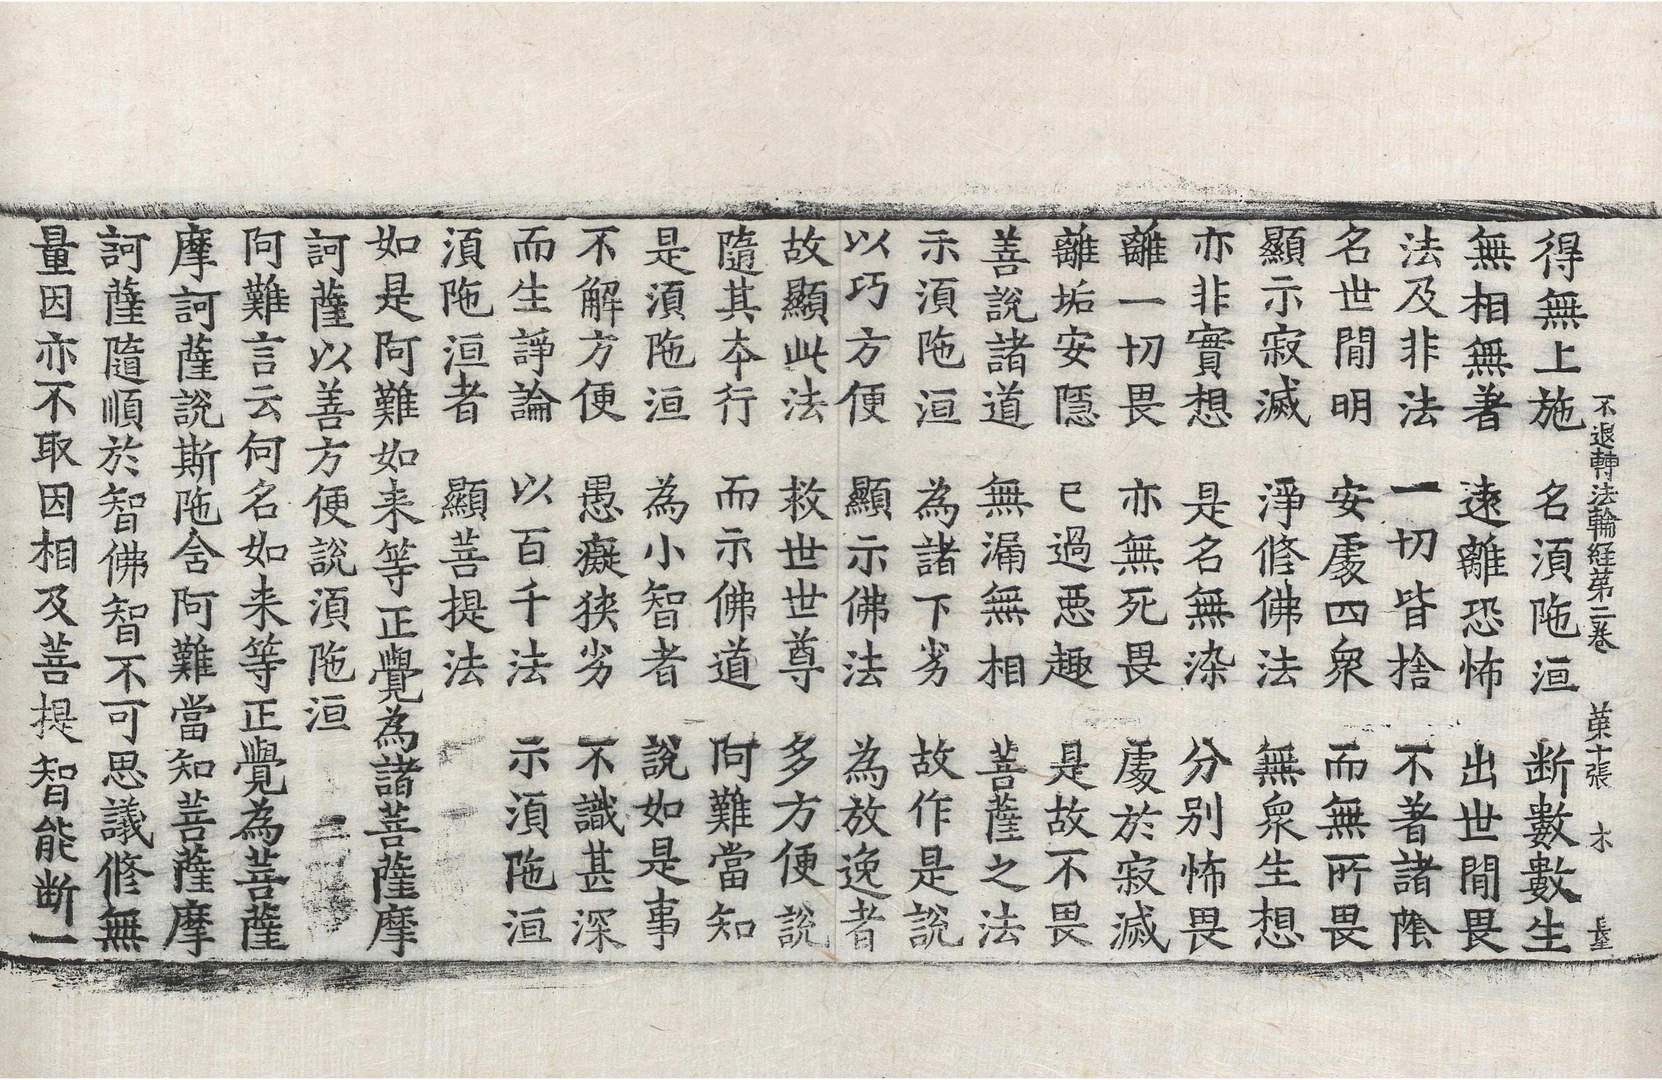 不退轉法輪経第二卷　第十張　木
得無上施　名湏陁洹　断數數生
無相無著　遠離恐怖　出世間畏
法及非法　一切皆捨　不著諸陰
名世間明　安處四衆　而無所畏
顯示寂滅　淨修佛法　無衆生想
亦非實想　是名無染　分别怖畏
離一切畏　亦無死畏　處於寂滅
離垢安隱　已過惡趣　是故不畏
善說諸道　無漏無相　菩薩之法
示湏陁洹　為諸下劣　故作是說
以巧方便　顯示佛法　為放逸者
故顯此法　救世世尊　多方便說
隨其本行　而示佛道　阿難當知
是湏陁洹　為小智者　說如是事
不解方便　愚癡狹劣　不識甚深
而生諍論　以百千法　示湏陁洹
湏陁洹者　顯菩提法
如是阿難如来等正覺為諸菩薩摩
訶薩以善方便說湏陁洹
阿難言云何名如来等正覺為菩薩
摩訶薩說斯陁含阿難當知菩薩摩
訶薩隨順於智佛智不可思議修無
量因亦不取因相及菩提智能断一